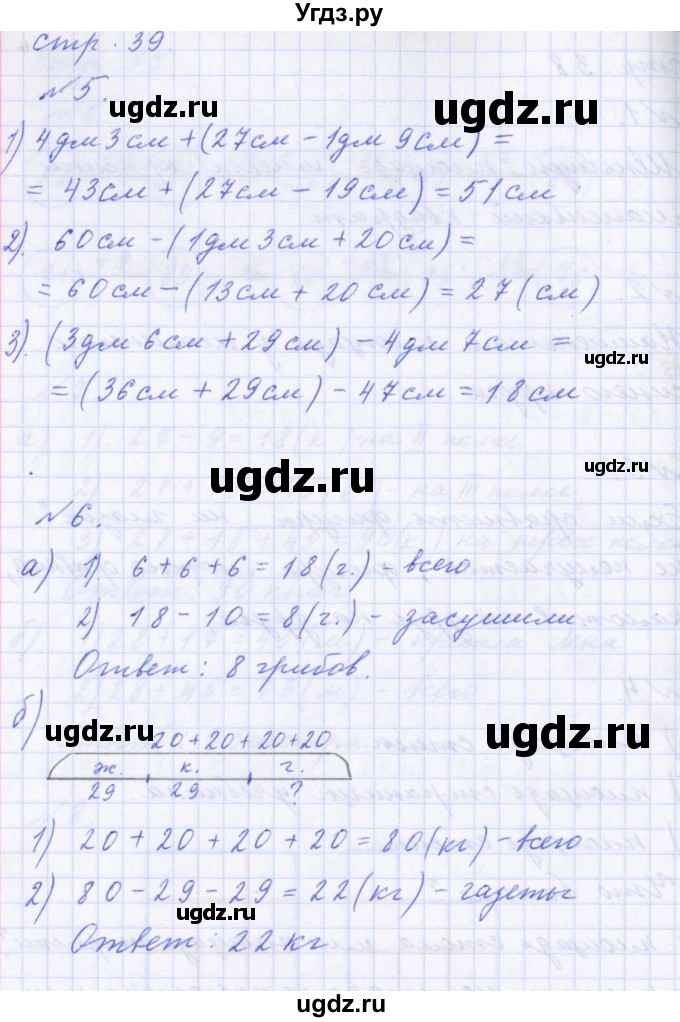 Угдз.ру
стр. 39.
№5.
1) 4дм 3см + (27см - 1дм 9см) =
= 43см + (27см - 19см) = 51см
2). 60см - (1дм 3см + 20см) =
= 60см - (13см + 20см) = 27 (см).
3). (3дм 6см + 29см) - 4дм 7см =
= (36см + 29см) - 47см = 18см
№6.
а) 1) 6 + 6 + 6 = 18 (г.) - всего
2) 18 - 10 = 8 (г.) - засушили
Ответ: 8 грибов.
б)
20 + 20 + 20 + 20
ж. к. г.
29 29 ?
1) 20 + 20 + 20 + 20 = 80 (кг) - всего
2) 80 - 29 - 29 = 22 (кг) - газеты
Ответ: 22 кг
ugdz.ru
ugdz.ru
ugdz.ru
ugdz.ru
ugdz.ru
ugdz.ru
ugdz.ru
ugdz.ru
ugdz.ru